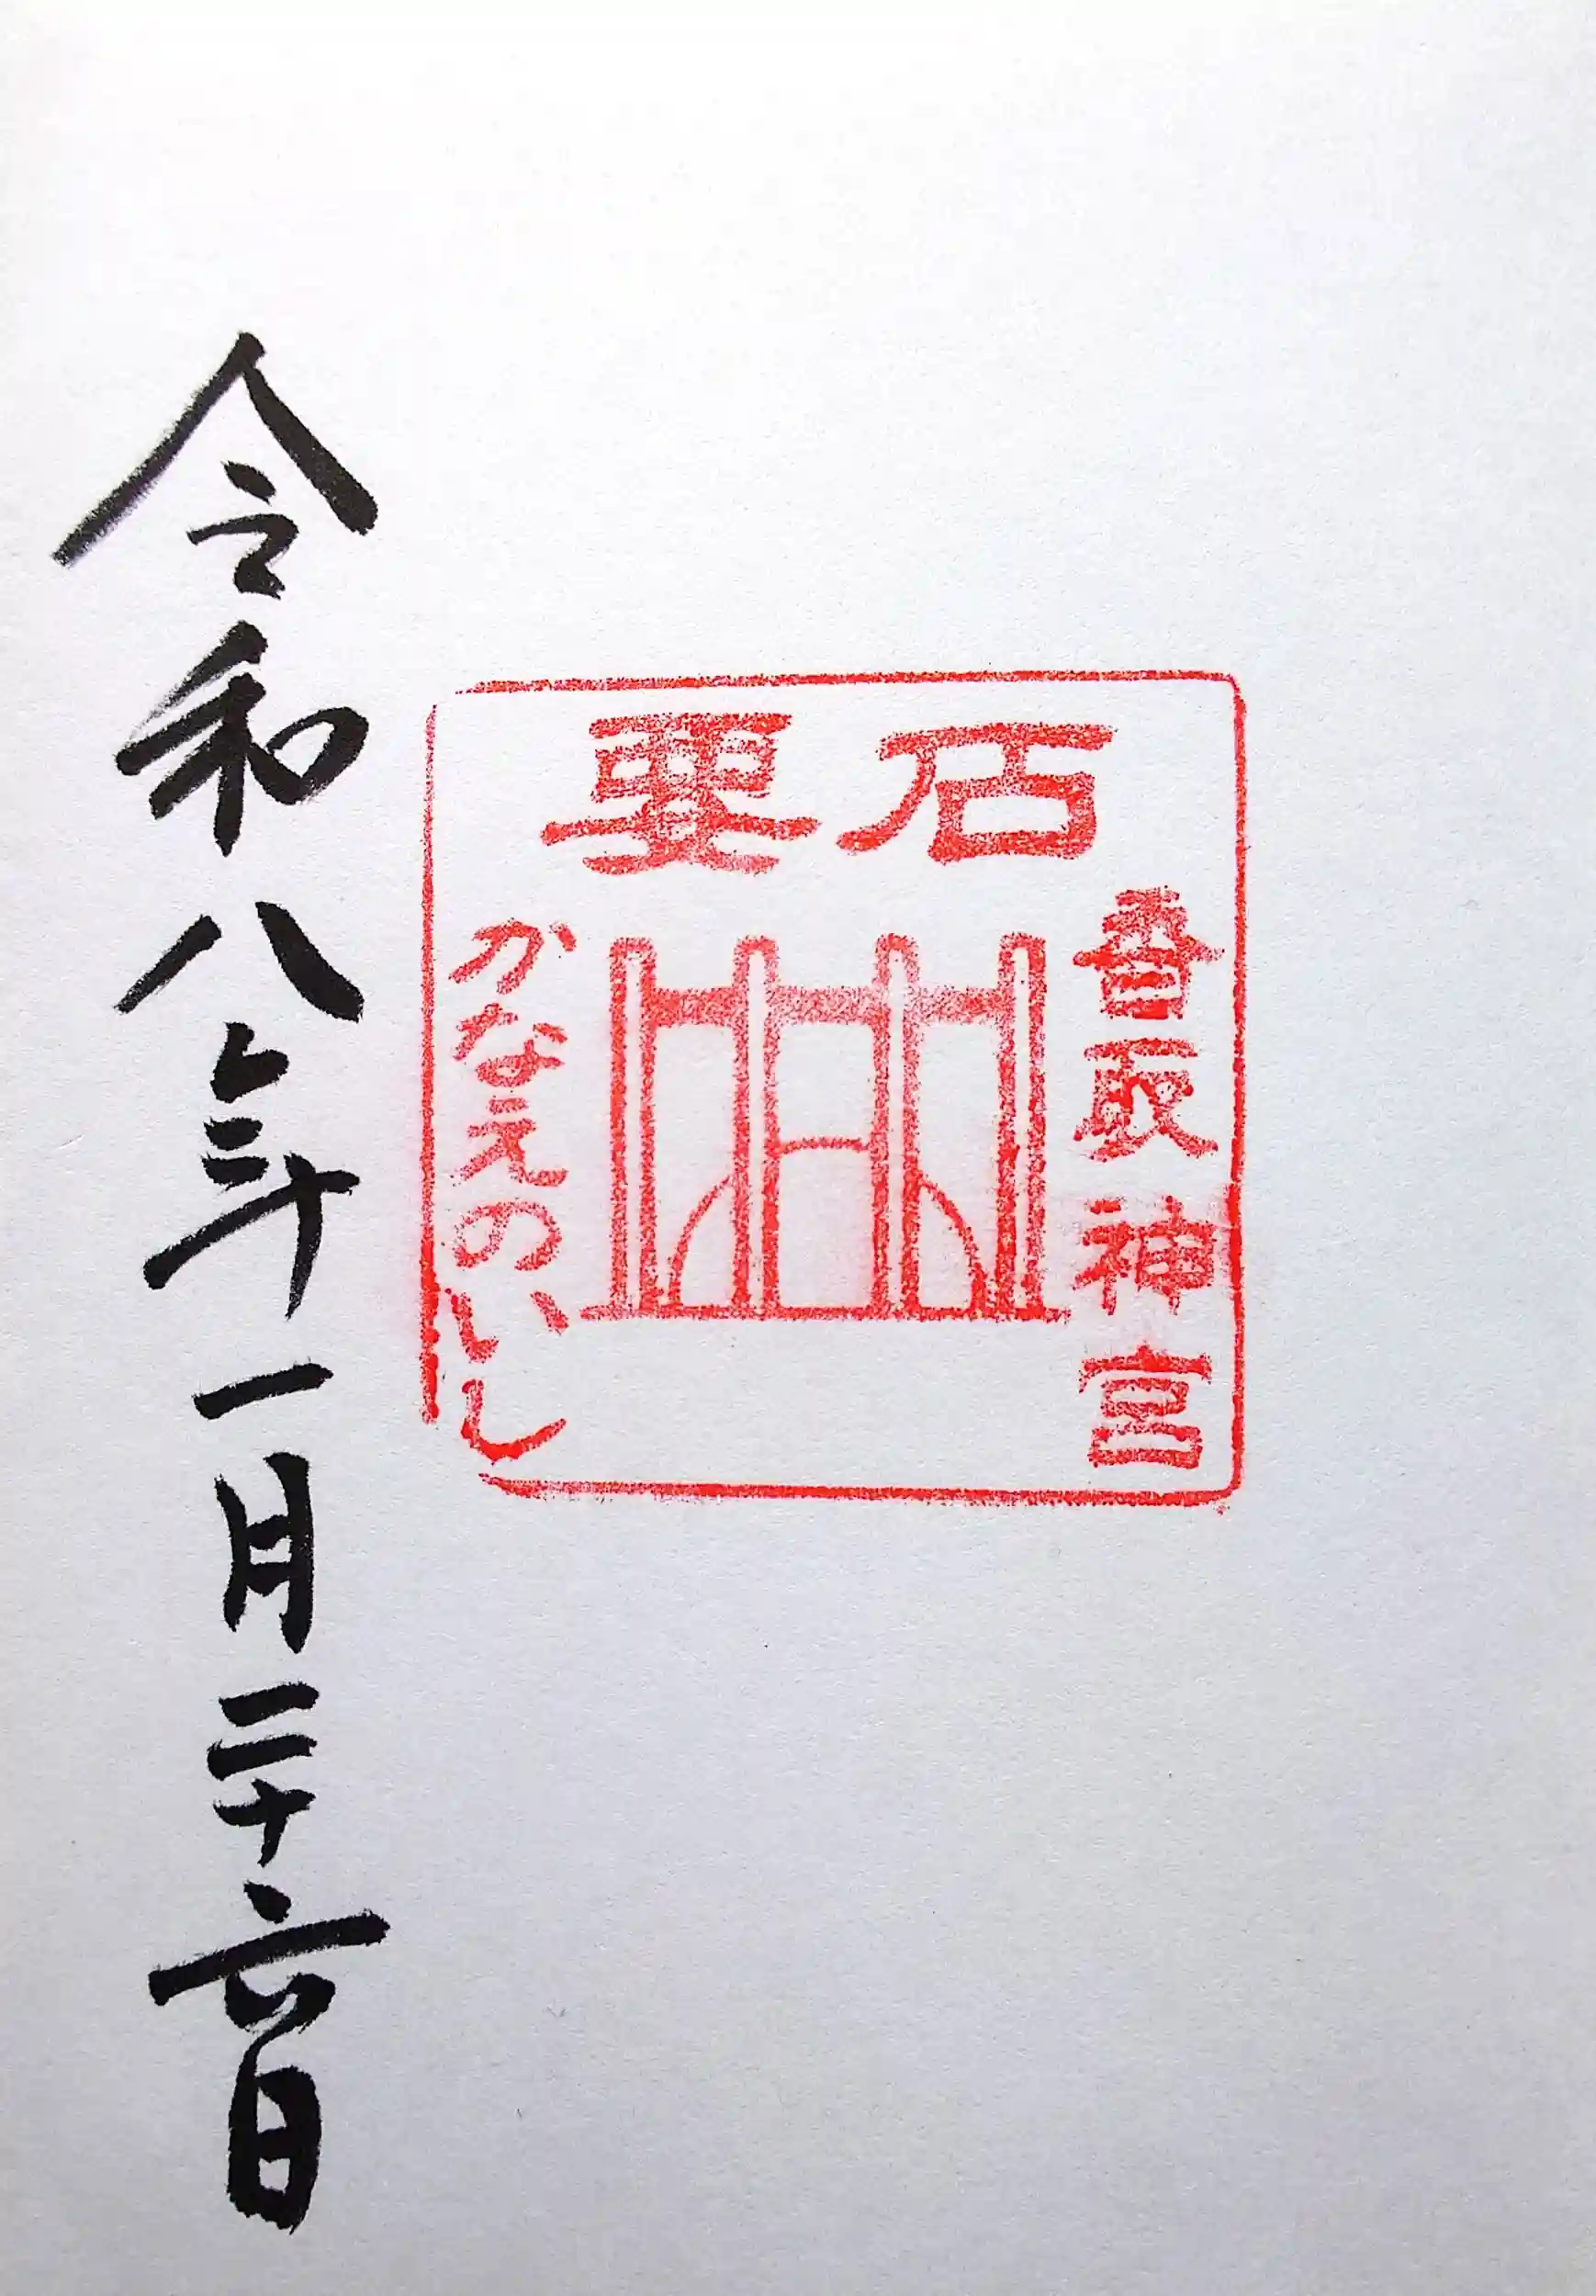 要石
香取神宮
かなえのいし
令和八年一月二十六日